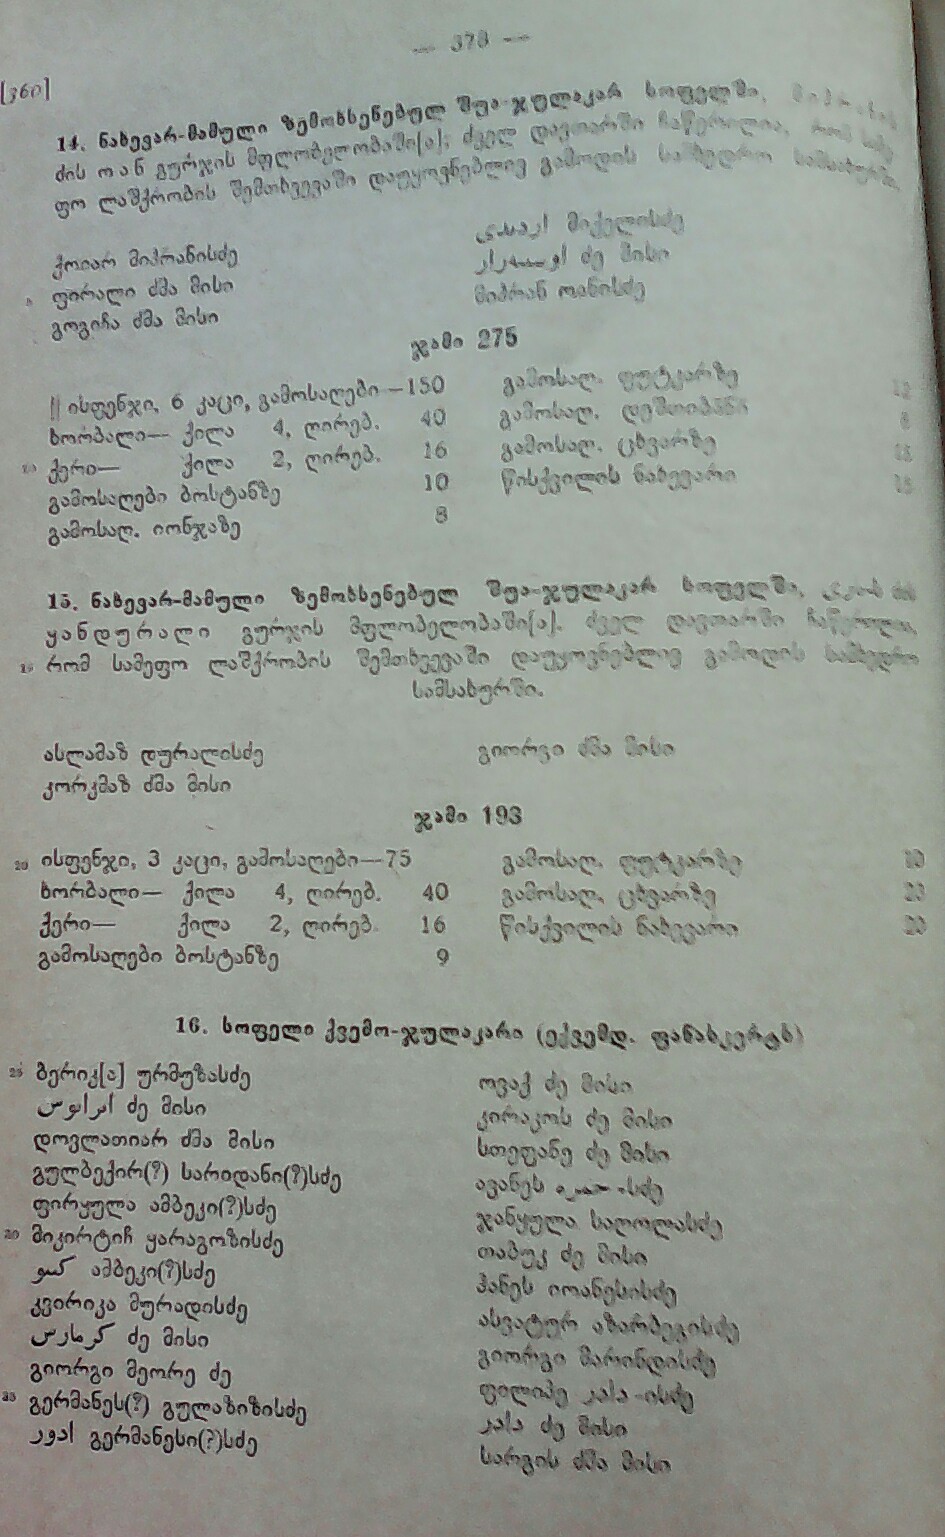 — 378 —
[360]
14. ნახევარ-მამული ზემოხსენებულ შუა-ჯულაკარ სოფელში,
ძის ოან გურჯის მფლობელობაში[ა]; ძველ დავთარში ჩაწერილია, რომ სამე
ფო ლაშქრობის შემთხვევაში დაუყოვნებლივ გამოდის სამხედრო სამსახურში.
ქოიარ მიჰრანისძე
ფირალი ძმა მისი
გოგიჩა ძმა მისი
მიქელისძე
ძე მისი
მიჰრან ოანისძე
ჯამი 275
|| ისფენჯი, 6 კაცი, გამოსაღები—150
ხორბალი— ქილა 4, ღირებ. 40
10 ქერი— ქილა 2, ღირებ. 16
გამოსაღები ბოსტანზე 10
გამოსაღ. იონჯაზე 8
გამოსაღ. ფუტკარზე
გამოსაღ. დეშთიბანს
გამოსაღ. ცხვარზე
წისქვილის ნახევარი
15. ნახევარ-მამული ზემოხსენებულ შუა-ჯულაკარ სოფელში,
ყანდურალი გურჯის მფლობელობაში[ა]. ძველ დავთარში ჩაწერილია,
15 რომ სამეფო ლაშქრობის შემთხვევაში დაუყოვნებლივ გამოდის სამხედრო
სამსახურში.
ასლამაზ დურალისძე
კორკმაზ ძმა მისი
გიორგი ძმა მისი
ჯამი 193
20 ისფენჯი, 3 კაცი, გამოსაღები—75
ხორბალი— ქილა 4, ღირებ. 40
ქერი— ქილა 2, ღირებ. 16
გამოსაღები ბოსტანზე 9
გამოსაღ. ფუტკარზე
გამოსაღ. ცხვარზე 20
წისქვილის ნახევარი 20
16. სოფელი ქვემო-ჯულაკარი (ექვემდ. ფანასკერტს)
25 ბერიკ[ა] ურმუზასძე
ძე მისი
დოვლათიარ ძმა მისი
გულბექირ(?) სარიდანი(?)სძე
ფირყულა ამბეკი(?)სძე
30 მიკირტიჩ ყარაგოზისძე
ამბეკი(?)სძე
კვირიკა მურადისძე
ძე მისი
გიორგი მეორე ძე
35 გერმანეს(?) გულაზიზისძე
გერმანესი(?)სძე
ოვაქ ძე მისი
კირაკოს ძე მისი
სთეფანე ძე მისი
ავანეს
ჯანყულა საღოლასძე
თაბუკ ძე მისი
ჰანეს იოანესისძე
ასვატურ აზარბეგისძე
გიორგი მარინდისძე
ფილიპე
ძე მისი
სარგის ძმა მისი